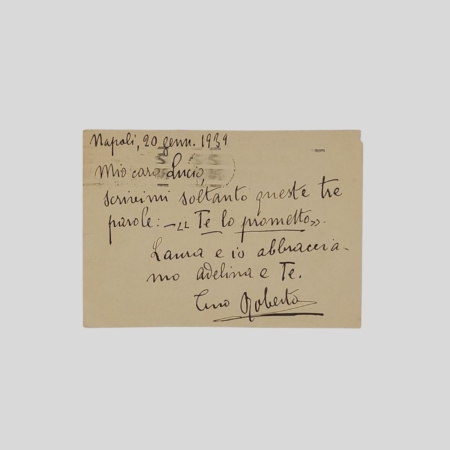 Napoli, 20 genn. 1939
Mio caro Lucio,
scrivimi soltanto queste tre
parole: – «Te lo prometto».
Laura e io abbraccia-
mo adelina e Te.
Tuo Roberto